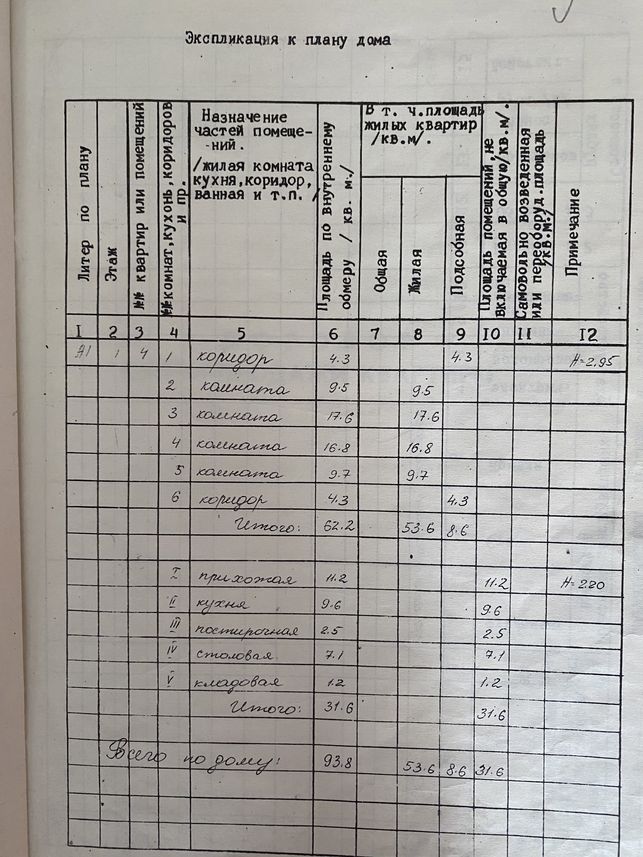 Экспликация к плану дома
Литер по плану
Этаж
№№ квартир или помещений
№№ комнат, кухонь, коридоров и пр.
Назначение
частей помеще-
ний.
/жилая комната
кухня, коридор,
ванная и т.п. /
Площадь по внутреннему
обмеру / кв. м./
В т. ч.площадь
жилых квартир
/кв.м/.
Общая
Жилая
Подсобная
Площадь помещений, не
включаемая в общую/кв.м/.
Самовольно возведенная
или переоборуд.площадь
/кв.м./
Примечание
I 2 3 4 5 6 7 8 9 IO II I2
А1 1 4 1 коридор 4.3 4.3 H=2.95
2 комната 9.5 9.5
3 комната 17.6 17.6
4 комната 16.8 16.8
5 комната 9.7 9.7
6 коридор 4.3 4.3
Итого: 62.2 53.6 8.6
I прихожая 11.2 11.2 H=2.20
II кухня 9.6 9.6
III постирочная 2.5 2.5
IV столовая 7.1 7.1
V кладовая 1.2 1.2
Итого: 31.6 31.6
Всего по дому: 93.8 53.6 8.6 31.6